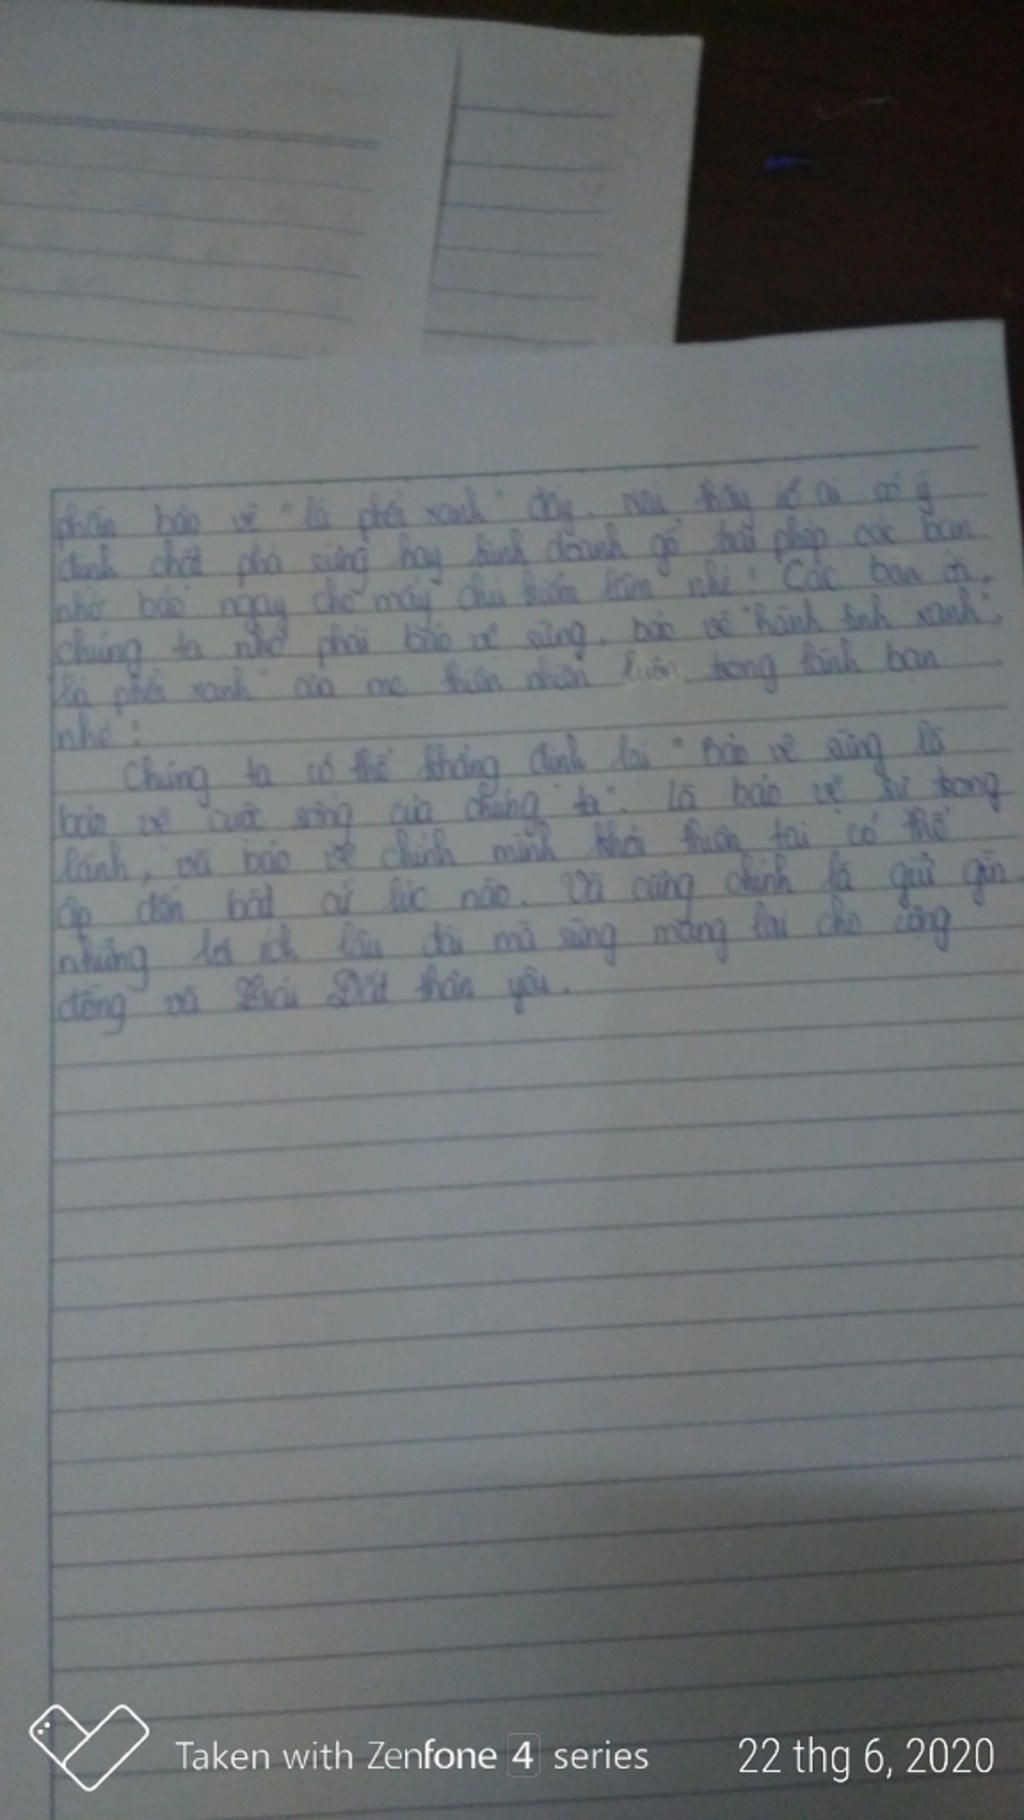 phần bảo vệ "lá phổi xanh" đấy. Nếu thấy có ai có ý
định chặt phá rừng hay kinh doanh gỗ trái phép các bạn
nhớ báo ngay cho mấy chú kiểm lâm nhé! Các bạn ơi,
chúng ta nhớ phải bảo vệ rừng, bảo vệ "hành tinh xanh",
"lá phổi xanh" của mẹ thiên nhiên luôn trong lành bạn
nhé!
Chúng ta có thể khẳng định lại "Bảo vệ rừng là
bảo vệ cuộc sống của chúng ta". Là bảo vệ sự trong
lành, và bảo vệ chính mình khỏi thiên tai có thể
ập đến bất cứ lúc nào. Và cũng chính là giữ gìn
những lợi ích lâu dài mà rừng mang lại cho cộng
đồng và Trái Đất thân yêu.
Taken with Zenfone 4 series
22 thg 6, 2020